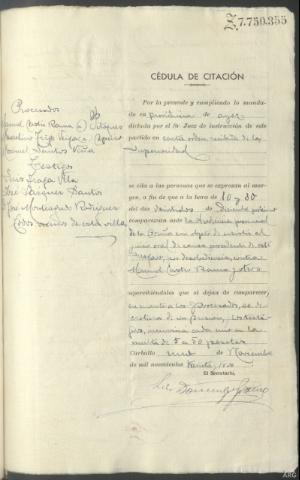 Z.7.750.355
CÉDULA DE CITACIÓN
Procesados
Manuel Castro Rama (a)
Manuel Santos Viña
Testigos
Luis Fraga Vila
José Vázquez Santos
José Montegut Rodríguez
todos vecinos de esta villa
Por la presente y cumpliendo lo manda-
do en providencia de ayer
dictada por el Sr. Juez de instrucción de este
partido en carta orden de la
Superioridad
se cita a las personas que se expresan al mar-
gen, a fin de que a la hora de 10 y 30
del día de Diciembre próximo
comparezcan ante la Audiencia provincial
de la Coruña con objeto de asistir al
juicio oral de causa procedente de este
Juzgado, por desobediencia, contra
Manuel Castro Rama y otros
apercibiéndoles que si dejan de comparecer,
en cuanto a los procesados, se de-
cretará de su prisión, los testi-
gos, incurrirá cada uno en la
multa de 5 a 50 pesetas
Carballo de Noviembre
de mil novecientos treinta
El Secretario,
ARG